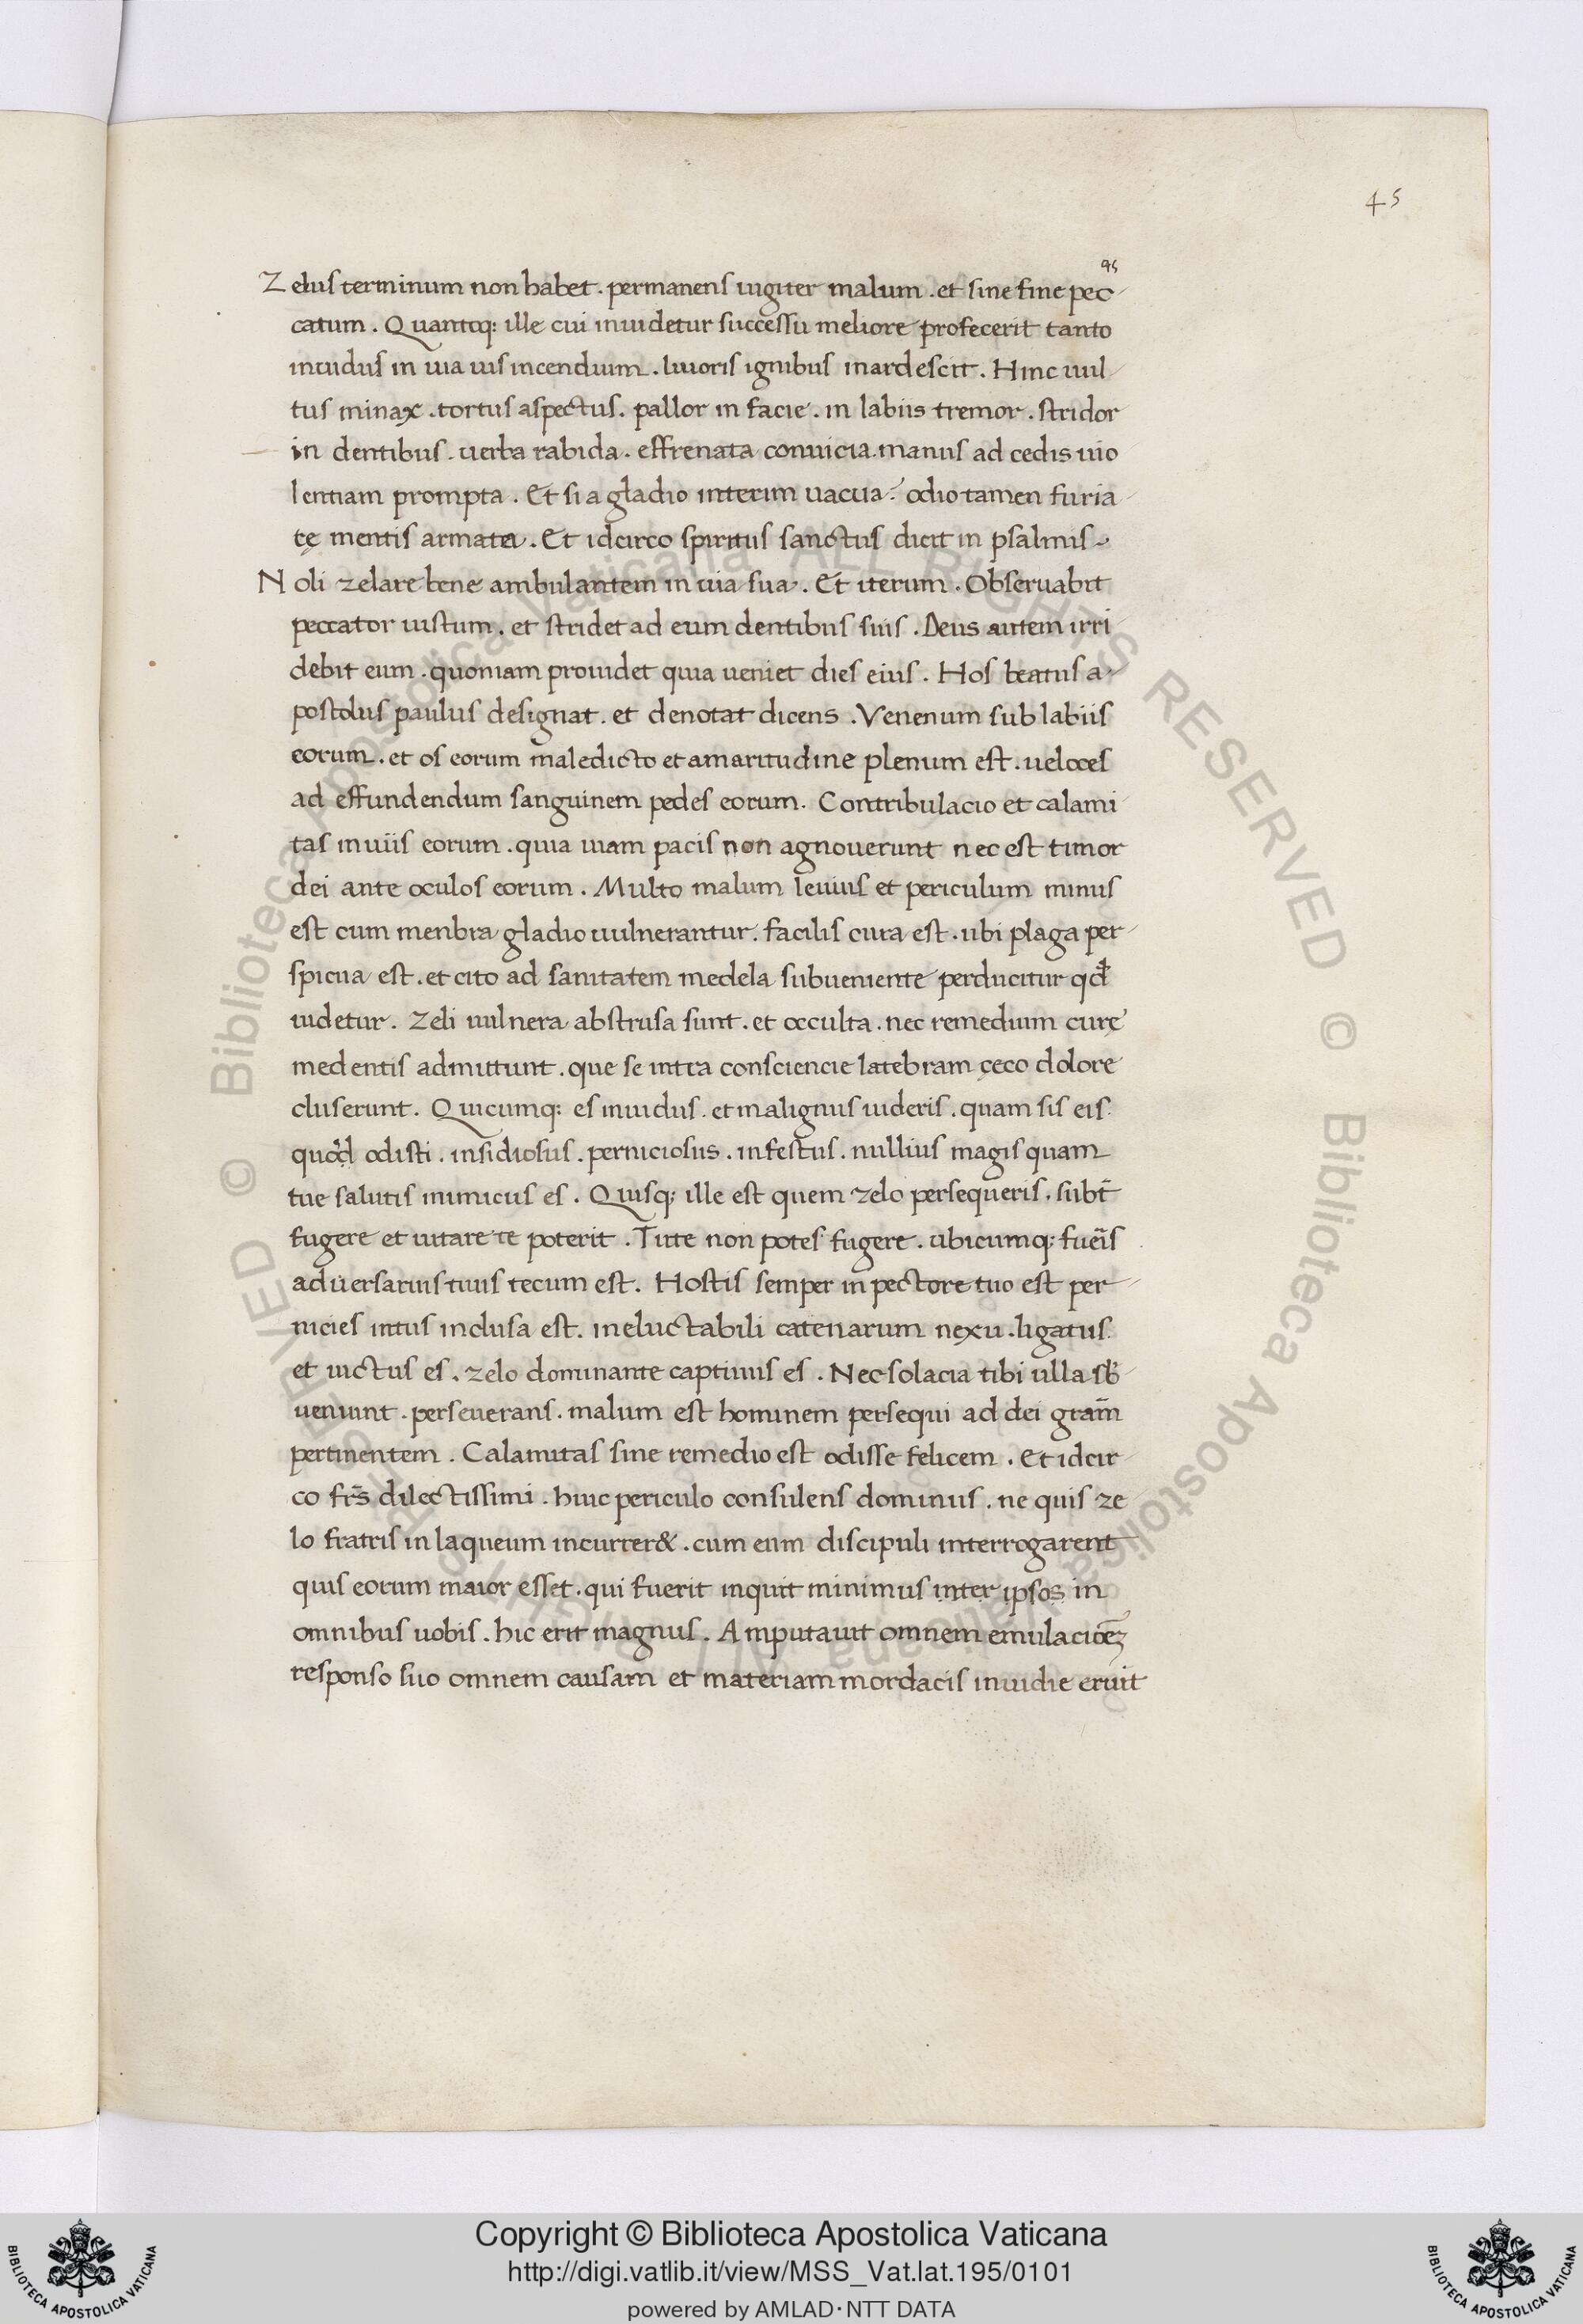 45
95
Zelus terminum non habet . permanens iugiter malum . et sine fine pec-
catum . Quantoq: ille cui inuidetur successu meliore profecerit tanto
inuidus in uia uis incendium . liuoris ignibus inardescit . Hinc uul-
tus minax . tortus aspectus . pallor in facie . in labiis tremor . stridor
in dentibus . uerba rabida . effrenata conuicia . manus ad cedis uio
lentiam prompta . Et si a gladio interim uacua? odio tamen furia-
tę mentis armata . Et idcirco spiritus sanctus dicit in psalmis .
Noli zelare bene ambulantem in uia sua . Et iterum . Obseruabit
peccator iustum . et stridet ad eum dentibus suis . Deus autem irri
debit eum . quoniam prouidet quia ueniet dies eius . Hos beatus a-
postolus paulus designat . et denotat dicens . Venenum sub labiis
eorum . et os eorum maledicto et amaritudine plenum est . ueloces
ad effundendum sanguinem pedes eorum . Contribulacio et calami-
tas in uiis eorum . quia uiam pacis non agnouerunt nec est timor
dei ante oculos eorum . Multo malum leuius et periculum minus
est cum menbra gladio uulnerantur . facilis cura est . ubi plaga per-
spicua est . et cito ad sanitatem medela subueniente perducitur qd
uidetur . Zeli uulnera abstrusa sunt . et occulta . nec remedium curę
medentis admittunt . que se intra consciencie latebram cęco dolore
cluserunt . Quicumq: es inuidus . et malignus uideris . quam sis eis
quod odisti . insidiosus . perniciosus . infestus . nullius magis quam
tue salutis inimicus es . Quisq; ille est quem zelo persequeris . subt̄
fugere et uitare te poterit . Tu te non potes fugere . ubicumq; fuēis
aduersarius tuus tecum est . Hostis semper in pectore tuo est per-
nicies intus inclusa est . ineluctabili catenarum nexu . ligatus .
et uictus es . zelo dominante captiuus es . Nec solacia tibi ulla sb-
ueniunt . perseuerans . malum est hominem persequi ad dei grām
pertinentem . Calamitas sine remedio est odisse felicem . Et idcir-
co frs̄ dilectissimi . huic periculo consulens dominus . ne quis ze
lo fratris in laqueum incurrer& . cum eum discipuli interrogarent
quis eorum maior esset . qui fuerit inquit minimus inter ipsos in
omnibus uobis . hic erit magnus . Amputauit omnem emulacioēȝ
responso suo omnem causam et materiam mordacis inuidie eruit
© Biblioteca Apostolica Vaticana ALL RIGHTS RESERVED © Biblioteca Apostolica Vaticana ALL RIGHTS RESERVED
Copyright © Biblioteca Apostolica Vaticana
http://digi.vatlib.it/view/MSS_Vat.lat.195/0101
powered by AMLAD·NTT DATA
BIBLIOTECA APOSTOLICA VATICANA
BIBLIOTECA APOSTOLICA VATICANA